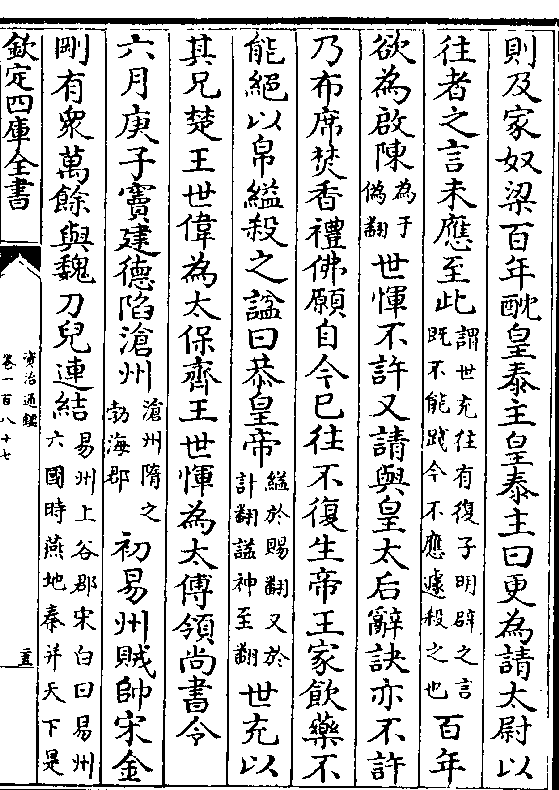 則及家奴梁百年酖皇泰主皇泰主曰更為請太尉以
往者之言未應至此謂世充往有復子明辟之言既不能踐今不應遽殺之也百年
欲為啟陳為于偽翻世惲不許又請與皇太后辭訣亦不許
乃布席焚香禮佛願自今已往不復生帝王家飲藥不
能絕以帛縊殺之諡曰恭皇帝縊於賜翻又於計翻諡神至翻世充以
其兄楚王世偉為太保齊王世惲為太傅領尚書令
六月庚子竇建德陷滄州滄州隋之勃海郡初易州賊帥宋金
剛有衆萬餘與魏刀兒連結易州上谷郡宋白曰易州六國時燕地秦并天下是
欽定四庫全書
資治通鑑
卷一百八十七